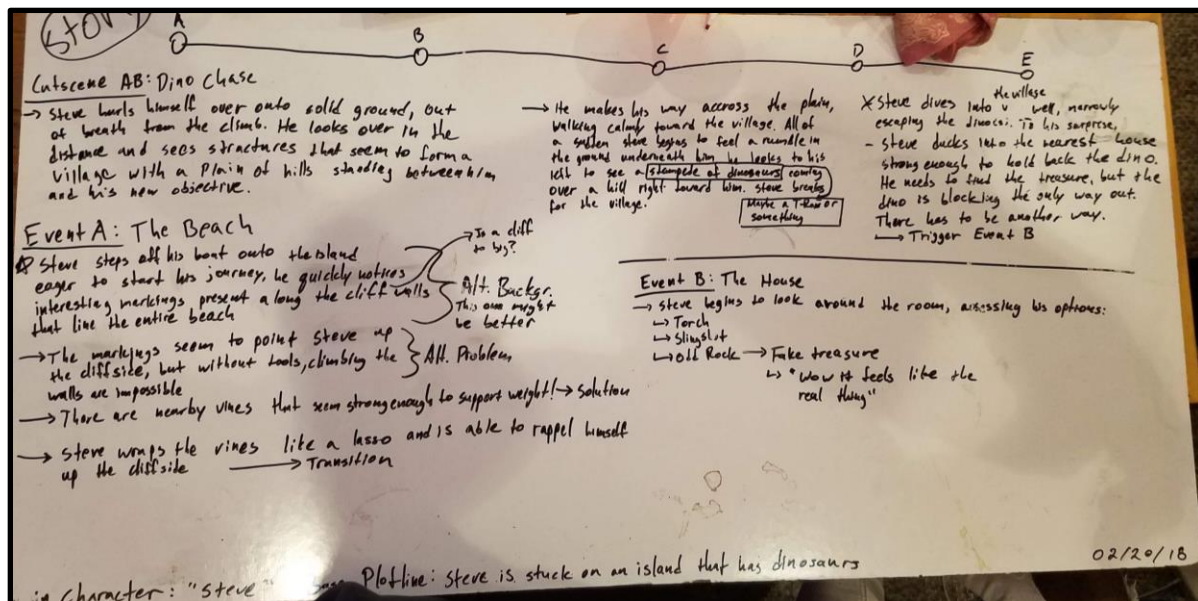 STORY
A
B
C
D
E
Cutscene AB: Dino Chase
→ Steve hurls himself over onto solid ground, out
of breath from the climb. He looks over in the
distance and sees structures that seem to form a
village with a Plain of hills standing between him
and his new objective.
Event A: The Beach
Steve steps off his boat onto the island
eager to start his journey, he quickly notices
interesting markings present along the cliff walls
that line the entire beach
→ Is a cliff
to big?
Alt. Backgr.
This one might
be better
→ The markings seem to point Steve up
the cliffside, but without tools, climbing the
walls are impossible
Alt. Problem
→ There are nearby vines that seem strong enough to support weight! → Solution
→ Steve wraps the vines like a lasso and is able to rappel himself
up the cliffside → Transition
→ He makes his way accross the plain,
walking calmly toward the village. All of
a sudden steve begins to feel a rumble in
the ground underneath him, he looks to his
left to see a stampede of dinosaurs coming
over a hill right toward him. Steve breaks
for the village.
Maybe a T-Rex or
something
the village
Steve dives into v well, narrowly
escaping the . To his surprise,
- Steve ducks into the nearest house
strong enough to hold back the dino.
He needs to find the treasure, but the
dino is blocking the only way out.
There has to be another way.
→ Trigger Event B
Event B: The House
→ Steve begins to look around the room, assessing his options:
↳ Torch
↳ Slingshot
↳ Odd Rock → Fake treasure
↳ "Wow it feels like the
real thing"
02/20/18
in Character: "Steve" Plotline: Steve is stuck on an island that has dinosaurs